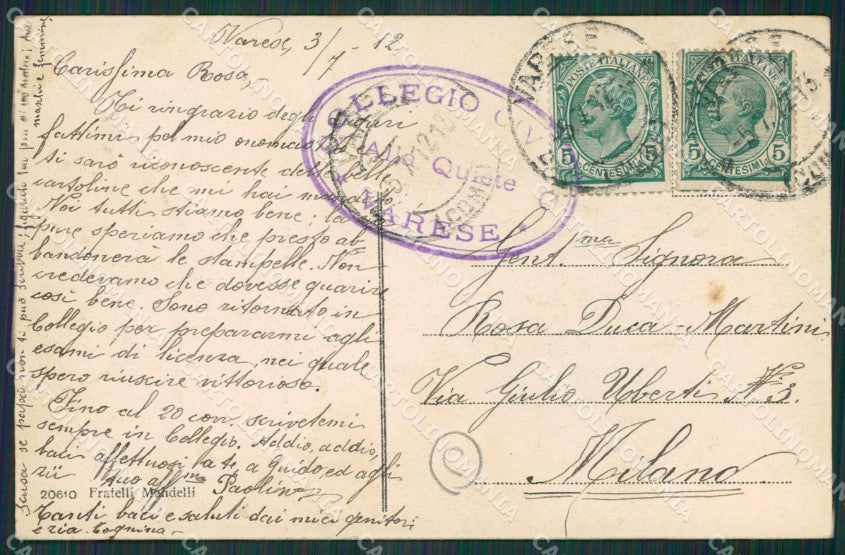 Varese, 3/7 - 12
Carissima Rosa,
Ti ringrazio degli auguri
fattimi pel mio onomastico e
ti sarò riconoscente delle belle
cartoline che mi hai mandato.
Noi tutti stiamo bene:
pure speriamo che presto ab-
bandonerà le stampelle. Non
credevamo che dovesse guarire
così bene. Sono ritornato in
Collegio per prepararmi agli
esami di licenza, nei quale
spero riuscire vittorioso.
Fino al 20 corr. scrivetemi
sempre in Collegio. Addio, addio,
baci affettuosi a te, a Guido ed agli
zii tuo aff.mo Paolino
20610 Fratelli Mandelli
Tanti baci e saluti dai miei genitori
e zia.
Scusa se papà non ti può scrivere;
COLLEGIO CIVICO
Alla Quiete
* VARESE *
VARESE
(COMO)
POSTE ITALIANE
5 CENTESIMI 5
POSTE ITALIANE
5 CENTESIMI 5
Gent.ma Signora
Rosa Duca-Martini
Via Giulio Uberti N. 3.
Milano
CARTOLINOMANIA